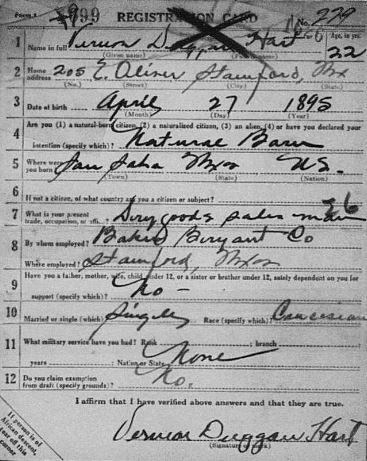 Form 1 999 REGISTRATION CARD No. 229
1 Name in full Vernor Duggan Hart Age, in yrs. 22
(Given name) (Family name)
2 Home address 205 E. Oliver Stamford, Tex
(No.) (Street) (City) (State)
3 Date of birth April 27 1895
(Month) (Day) (Year)
4 Are you (1) a natural-born citizen, (2) a naturalized citizen, (3) an alien, (4) or have you declared your
intention (specify which)? Natural Born
5 Where were you born? San Saba Tex US.
(Town) (State) (Nation)
6 If not a citizen, of what country are you a citizen or subject?
7 What is your present trade, occupation, or office? Dry goods sales man 26
8 By whom employed? Baker Bryant Co
Where employed? Stamford, Tex
9 Have you a father, mother, wife, child under 12, or a sister or brother under 12, solely dependent on you for
support (specify which)? No
10 Married or single (which)? Single Race (specify which)? Caucasian
11 What military service have you had? Rank ; branch
years ; Nation or State None
12 Do you claim exemption from draft (specify grounds)? No.
I affirm that I have verified above answers and that they are true.
Vernor Duggan Hart
(Signature or mark)
If person is of African descent, tear off this corner